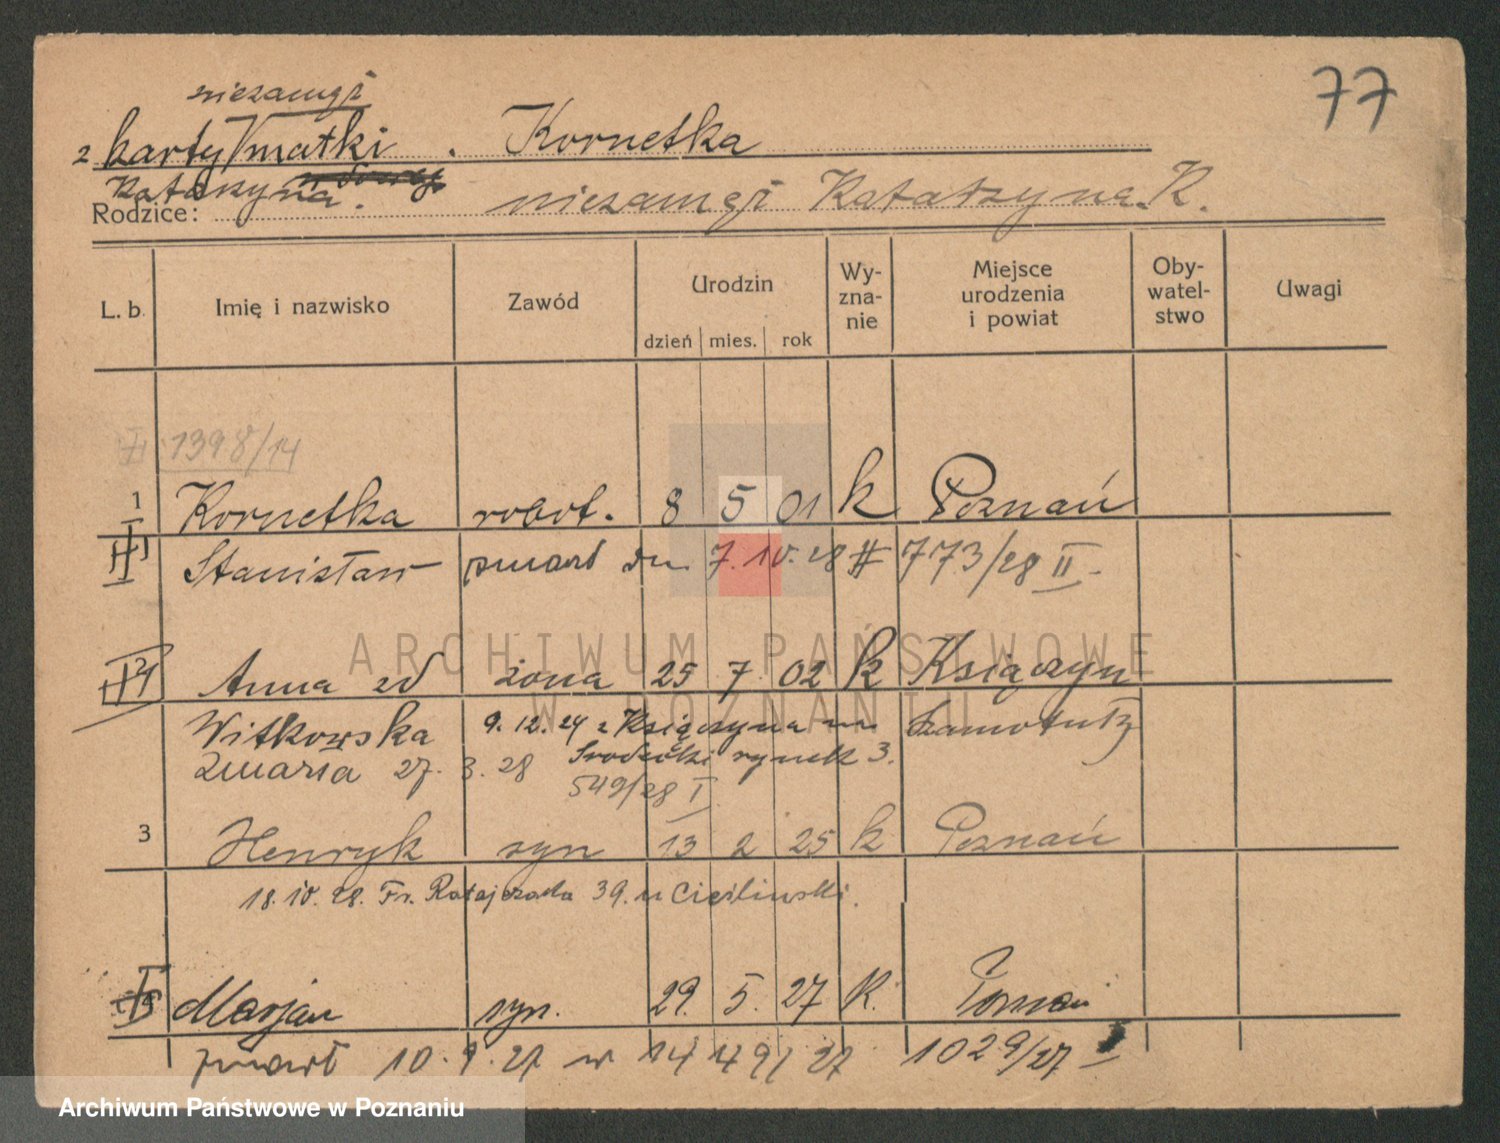 77
niezamęż
z karty matki. Kornetka
Katarzyna.
Rodzice: niezamęż Katarzyna K.
L. b. Imię i nazwisko Zawód Urodzin dzień mies. rok Wy-zna-nie Miejsce urodzenia i powiat Oby-watel-stwo Uwagi
1398/14
1 Kornetka robot. 8 5 01 k Poznań
Stanisław zmarł dn 7.10.28 # 773/28 II
ARCHIWUM PAŃSTWOWE
W POZNANIU
Anna zd żona 25 7 02 k Książczyn
Witkowska 9.12.24 z Książczyna na Szamotuły
zmarła 27.3.28 Srodecki rynek 3.
549/28 I
3 Henryk syn 13 2 25 k Poznań
18.10.28. Fr. Ratajczaka 39. u Cieślinski.
Marjan syn. 29. 5. 27 K. Poznań
zmarł 10.9.27 w 1029/27 I
Archiwum Państwowe w Poznaniu